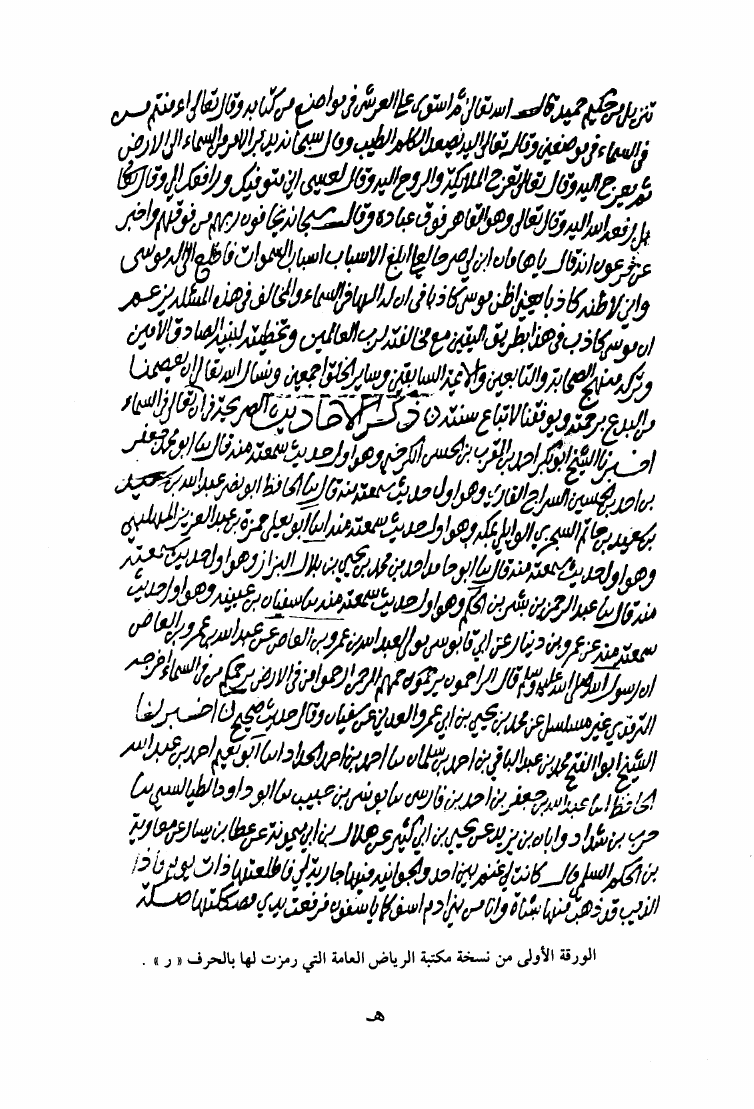 تنزيل من حكيم حميد قال الله تعالى ثم استوى على العرش في مواضع من كتابه وقال تعالى اءمنتم من
في السماء في موضعين وقال تعالى اليه يصعد الكلم الطيب وقال سبحانه يدبر الامر من السماء الى الارض
ثم يعرج اليه وقال تعالى تعرج الملائكة والروح اليه وقال لعيسى اني متوفيك ورافعك الي وقال تعالى
بل رفعه الله اليه وقال تعالى وهو القاهر فوق عباده وقال سبحانه يخافون ربهم من فوقهم واخبر
عن فرعون انه قال ياهامان ابن لي صرحا لعلي ابلغ الاسباب اسباب السموات فاطلع الى اله موسى
واني لاظنه كاذبا يعني اظن موسى كاذبا في ان له الها في السماء والمخالف في هذه المسئله يزعم
ان موسى كاذب في هذا بطريق اليقين مع مخالفته لرب العالمين وتخطيته لنبيه الصادق الامين
وتركه منهج الصحابة والتابعين والائمة السابقين وساير الخلق اجمعين ونسال الله تعالى ان يعصمنا
من البدع برحمته ويوفقنا لاتباع سنته ذكر الاحاديث الصريحة في ان الله تعالى في السماء
اخبرنا الشيخ ابو بكر احمد بن المقرب بن الحسن الكرخي وهو اول حديث سمعته منه قال ابنا ابو محمد جعفر
بن احمد بن الحسين السراج القاري وهو اول حديث سمعته منه قال ابنا الحافظ ابو نصر عبيد الله بن سعيد
بن حاتم السجزي الوايلي بمكه وهو اول حديث سمعته منه ابنا ابو يعلى حمزة بن عبد العزيز المهلبي
وهو اول حديث سمعته منه قال ابنا ابو حامد احمد بن محمد بن يحيى بن بلال البزاز وهو اول حديث سمعته
منه قال ثنا عبد الرحمن بن بشر بن الحكم وهو اول حديث سمعته منه ثنا سفيان بن عيينه وهو اول حديث
سمعته منه عن عمرو بن دينار عن ابي قابوس مولى لعبد الله بن عمرو بن العاص عن عبد الله بن عمرو بن العاص
ان رسول الله صلى الله عليه وسلم قال الراحمون يرحمهم الرحمن ارحموا من في الارض يرحمكم من في السماء اخرجه
الترمذي غير مسلسل عن محمد بن يحيى بن ابي عمر العدني عن سفيان وقال حديث صحيح اخبرنا
الشيخ ابو الفتح محمد بن عبد الباقي بن احمد بن سلمان ابنا احمد بن احمد الحداد ابنا ابو نعيم احمد بن عبد الله
الحافظ ابنا عبد الله بن جعفر بن احمد بن فارس ثنا يونس بن حبيب ثنا ابو داود الطيالسي ثنا
حرب بن شداد وابان بن يزيد عن يحيى بن ابي كثير عن هلال بن ابي ميمونة عن عطا بن يسار عن معاوية
بن الحكم السلمي قال كانت لي غنم بين احد والجوانيه فيها جارية لي فاطلعتها ذات يوم فاذا
الذيب قد ذهب منها بشاة وانا من بني ادم اسف كما ياسفون فرفعت يدي فصككتها صكة
الورقة الأولى من نسخة مكتبة الرياض العامة التي رمزت لها بالحرف « ر » .
هـ